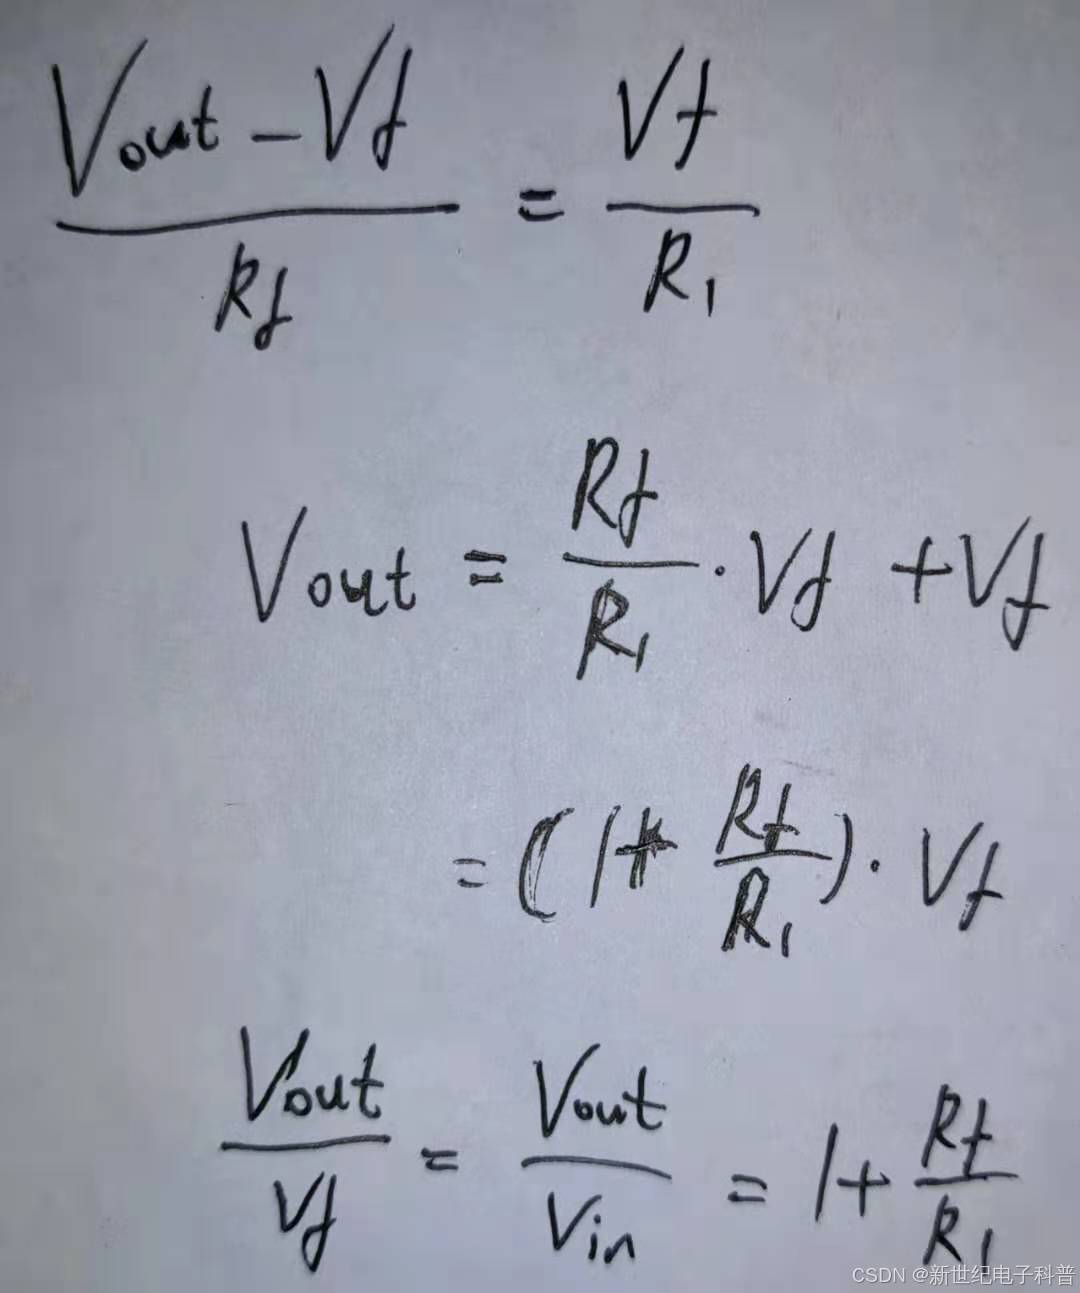 (Vout - Vf) / Rf = Vf / R1
Vout = Rf / R1 · Vf + Vf
= (1 + Rf / R1) · Vf
Vout / Vf = Vout / Vin = 1 + Rf / R1
CSDN @新世纪电子科普